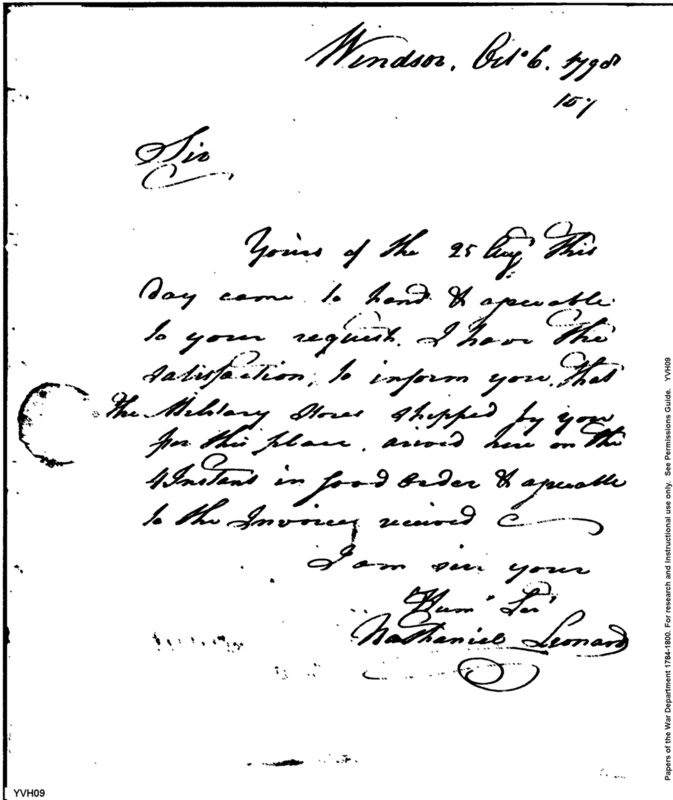 Windsor, Octo 6. 1798
157
Sir
Yours of the 25 Augt This
Day came to hand & agreable
to your request. I have the
satisfaction, to inform you, that
the Military Stores shipped by you
for this place, arived here on the
4 Instant in good order & agreable
to the Invoices received
I am sir your
Huml Ser
Nathaniel Leonard
Papers of the War Department 1784-1800. For research and Instructional use only. See Permissions Guide. YVH09
YVH09